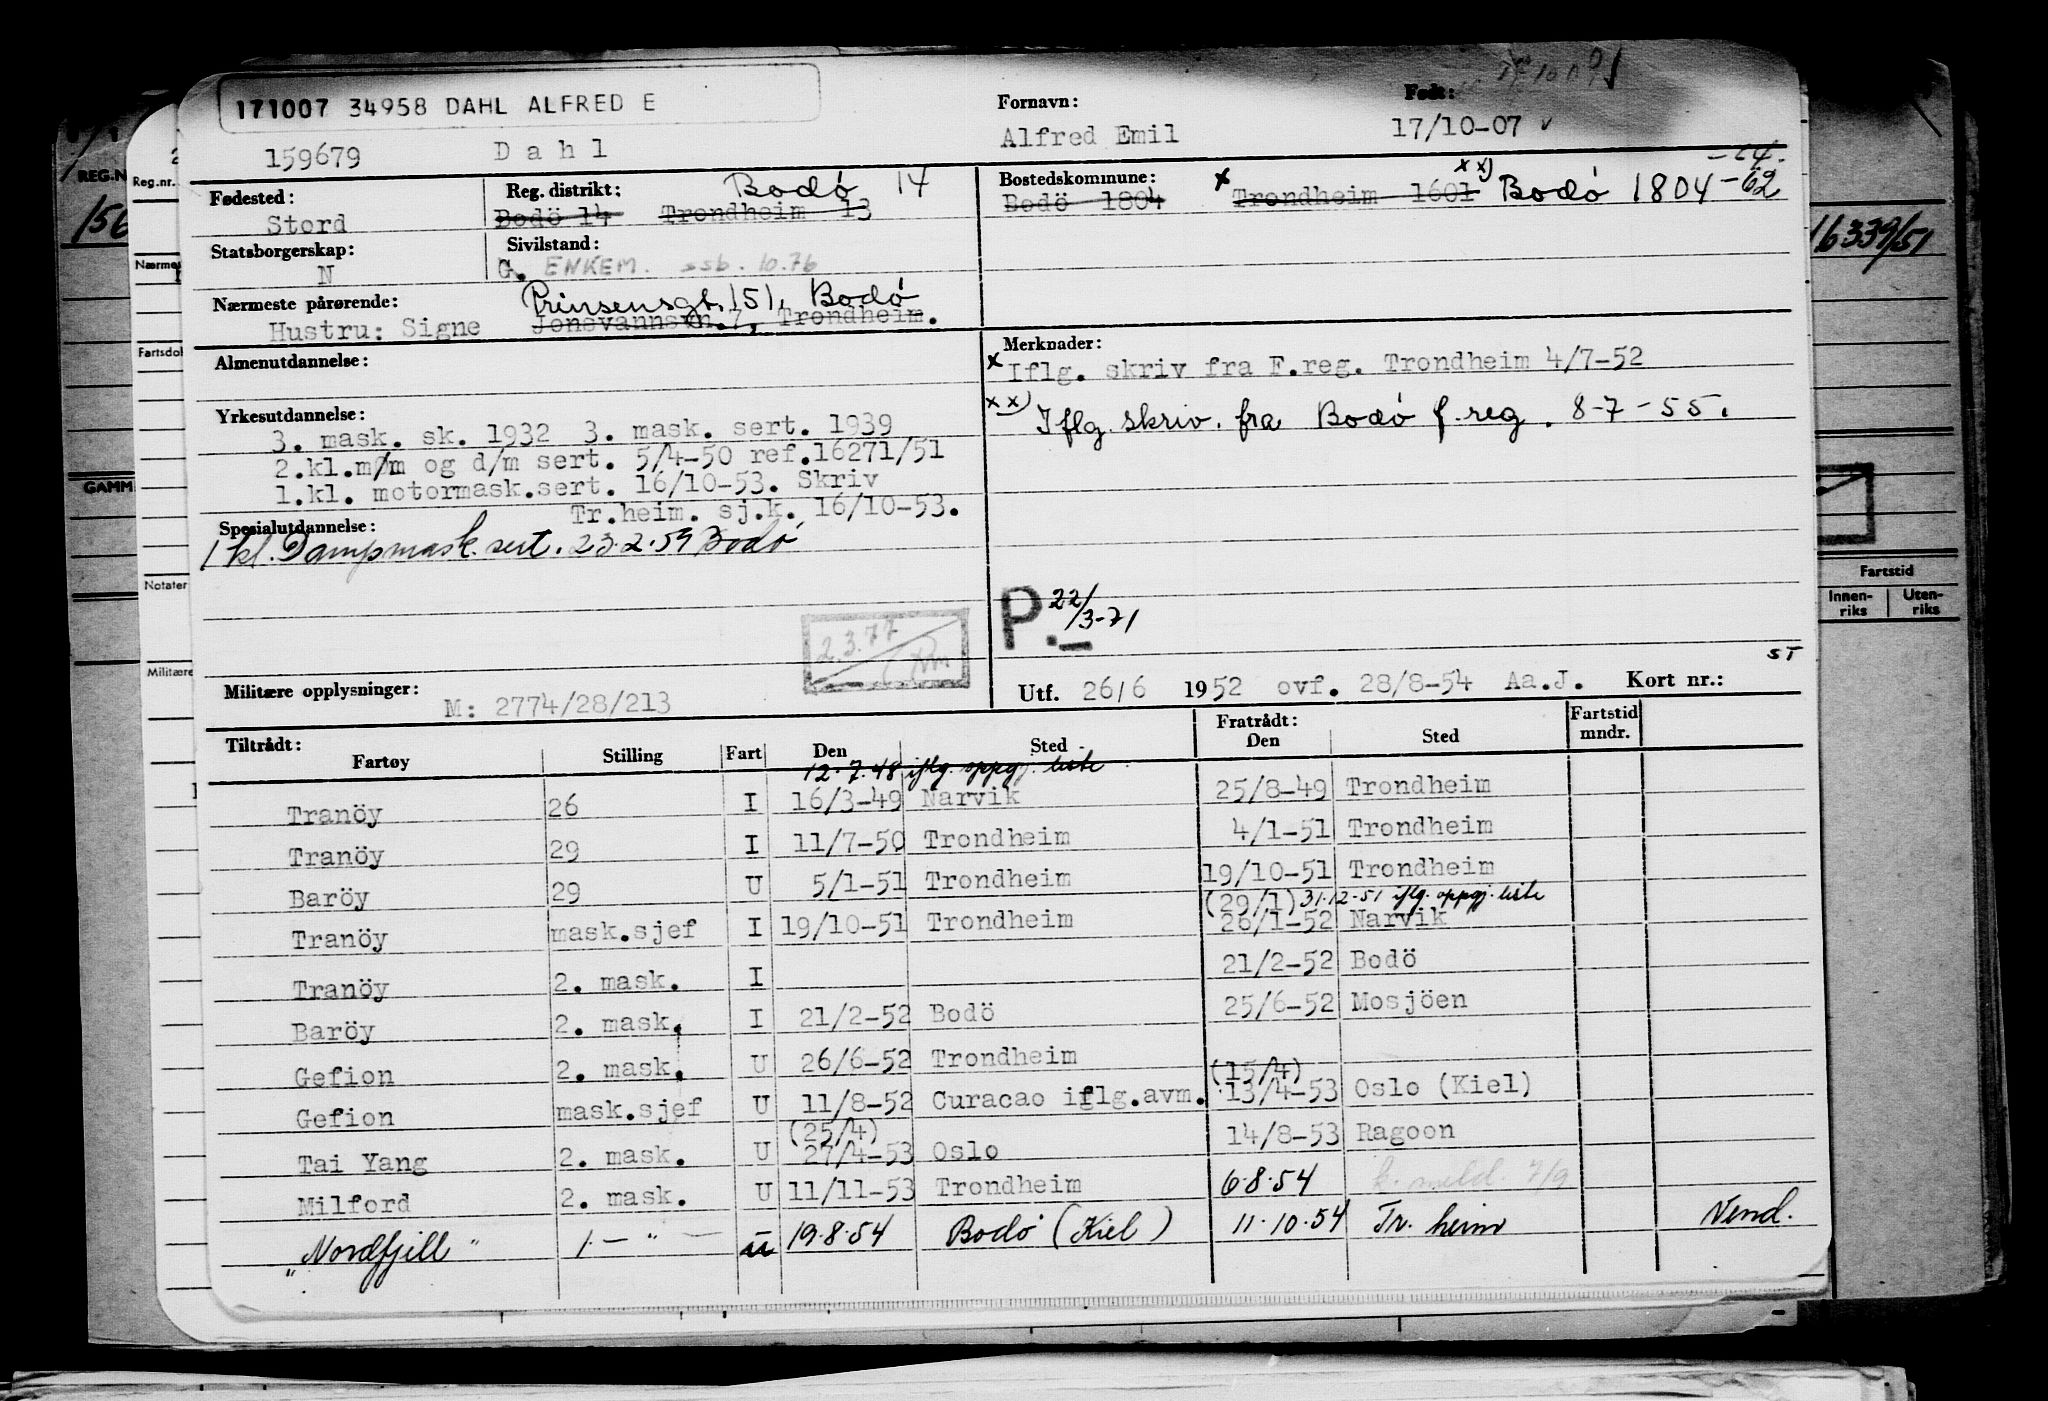 171007 34958 DAHL ALFRED E
159679 Dahl
Fornavn: Alfred Emil
Født: 17/10-07
Fødested: Stord
Reg. distrikt: Bodö 14 Trondheim 13 Bodø 14
Bostedskommune: Bodö 1804 x Trondheim 1601 xx) Bodø 1804 -62 -64.
Statsborgerskap: N
Sivilstand: G. ENKEM. ssb. 10.76
Nærmeste pårørende: Prinsensgt. 151, Bodø
Hustru: Signe Jonsvannsvn.7, Trondheim.
Almenutdannelse:
Merknader:
x Iflg. skriv fra F.reg. Trondheim 4/7-52
xx) Iflg. skriv. fra Bodø f.reg. 8-7-55.
Yrkesutdannelse:
3. mask. sk. 1932 3. mask. sert. 1939
2.kl.m/m og d/m sert. 5/4-50 ref.16271/51
1.kl. motormask.sert. 16/10-53. Skriv
Tr.heim. sj.k. 16/10-53.
Spesialutdannelse:
1 kl. Dampmask. sert. 23.2.59 Bodø
P.- 22/3-71
2.3.77
Militære opplysninger: M: 2774/28/213
ST
Utf. 26/6 1952 ovf. 28/8-54 Aa.J. Kort nr.:
Tiltrådt: Fratrådt:
Fartøy Stilling Fart Den Sted Den Sted Fartstid mndr.
12.7.48 iflg. oppgj. liste
Tranöy 26 I 16/3-49 Narvik 25/8-49 Trondheim
Tranöy 29 I 11/7-50 Trondheim 4/1-51 Trondheim
Baröy 29 U 5/1-51 Trondheim 19/10-51 Trondheim
(29/1) 31.12.51 iflg. oppgj. liste
Tranöy mask.sjef I 19/10-51 Trondheim 26/1-52 Narvik
Tranöy 2. mask. I 21/2-52 Bodö
Baröy 2. mask. I 21/2-52 Bodö 25/6-52 Mosjöen
Gefion 2. mask. U 26/6-52 Trondheim
(15/4)
Gefion mask.sjef U 11/8-52 Curacao iflg.avm. 13/4-53 Oslo (Kiel)
(25/4)
Tai Yang 2. mask. U 27/4-53 Oslo 14/8-53 Ragoon
Milford 2. mask. U 11/11-53 Trondheim 6.8.54 k. meld. 7/9
"Nordfjill" 1. - " - U 19.8.54 Bodø (Kiel) 11.10.54 Tr. heim Vend.
REG.N
156
GAMM
Reg.nr.
Nærmes
Fartsdok
Notater
Militære
16339/51
Fartstid
Innenriks Utenriks